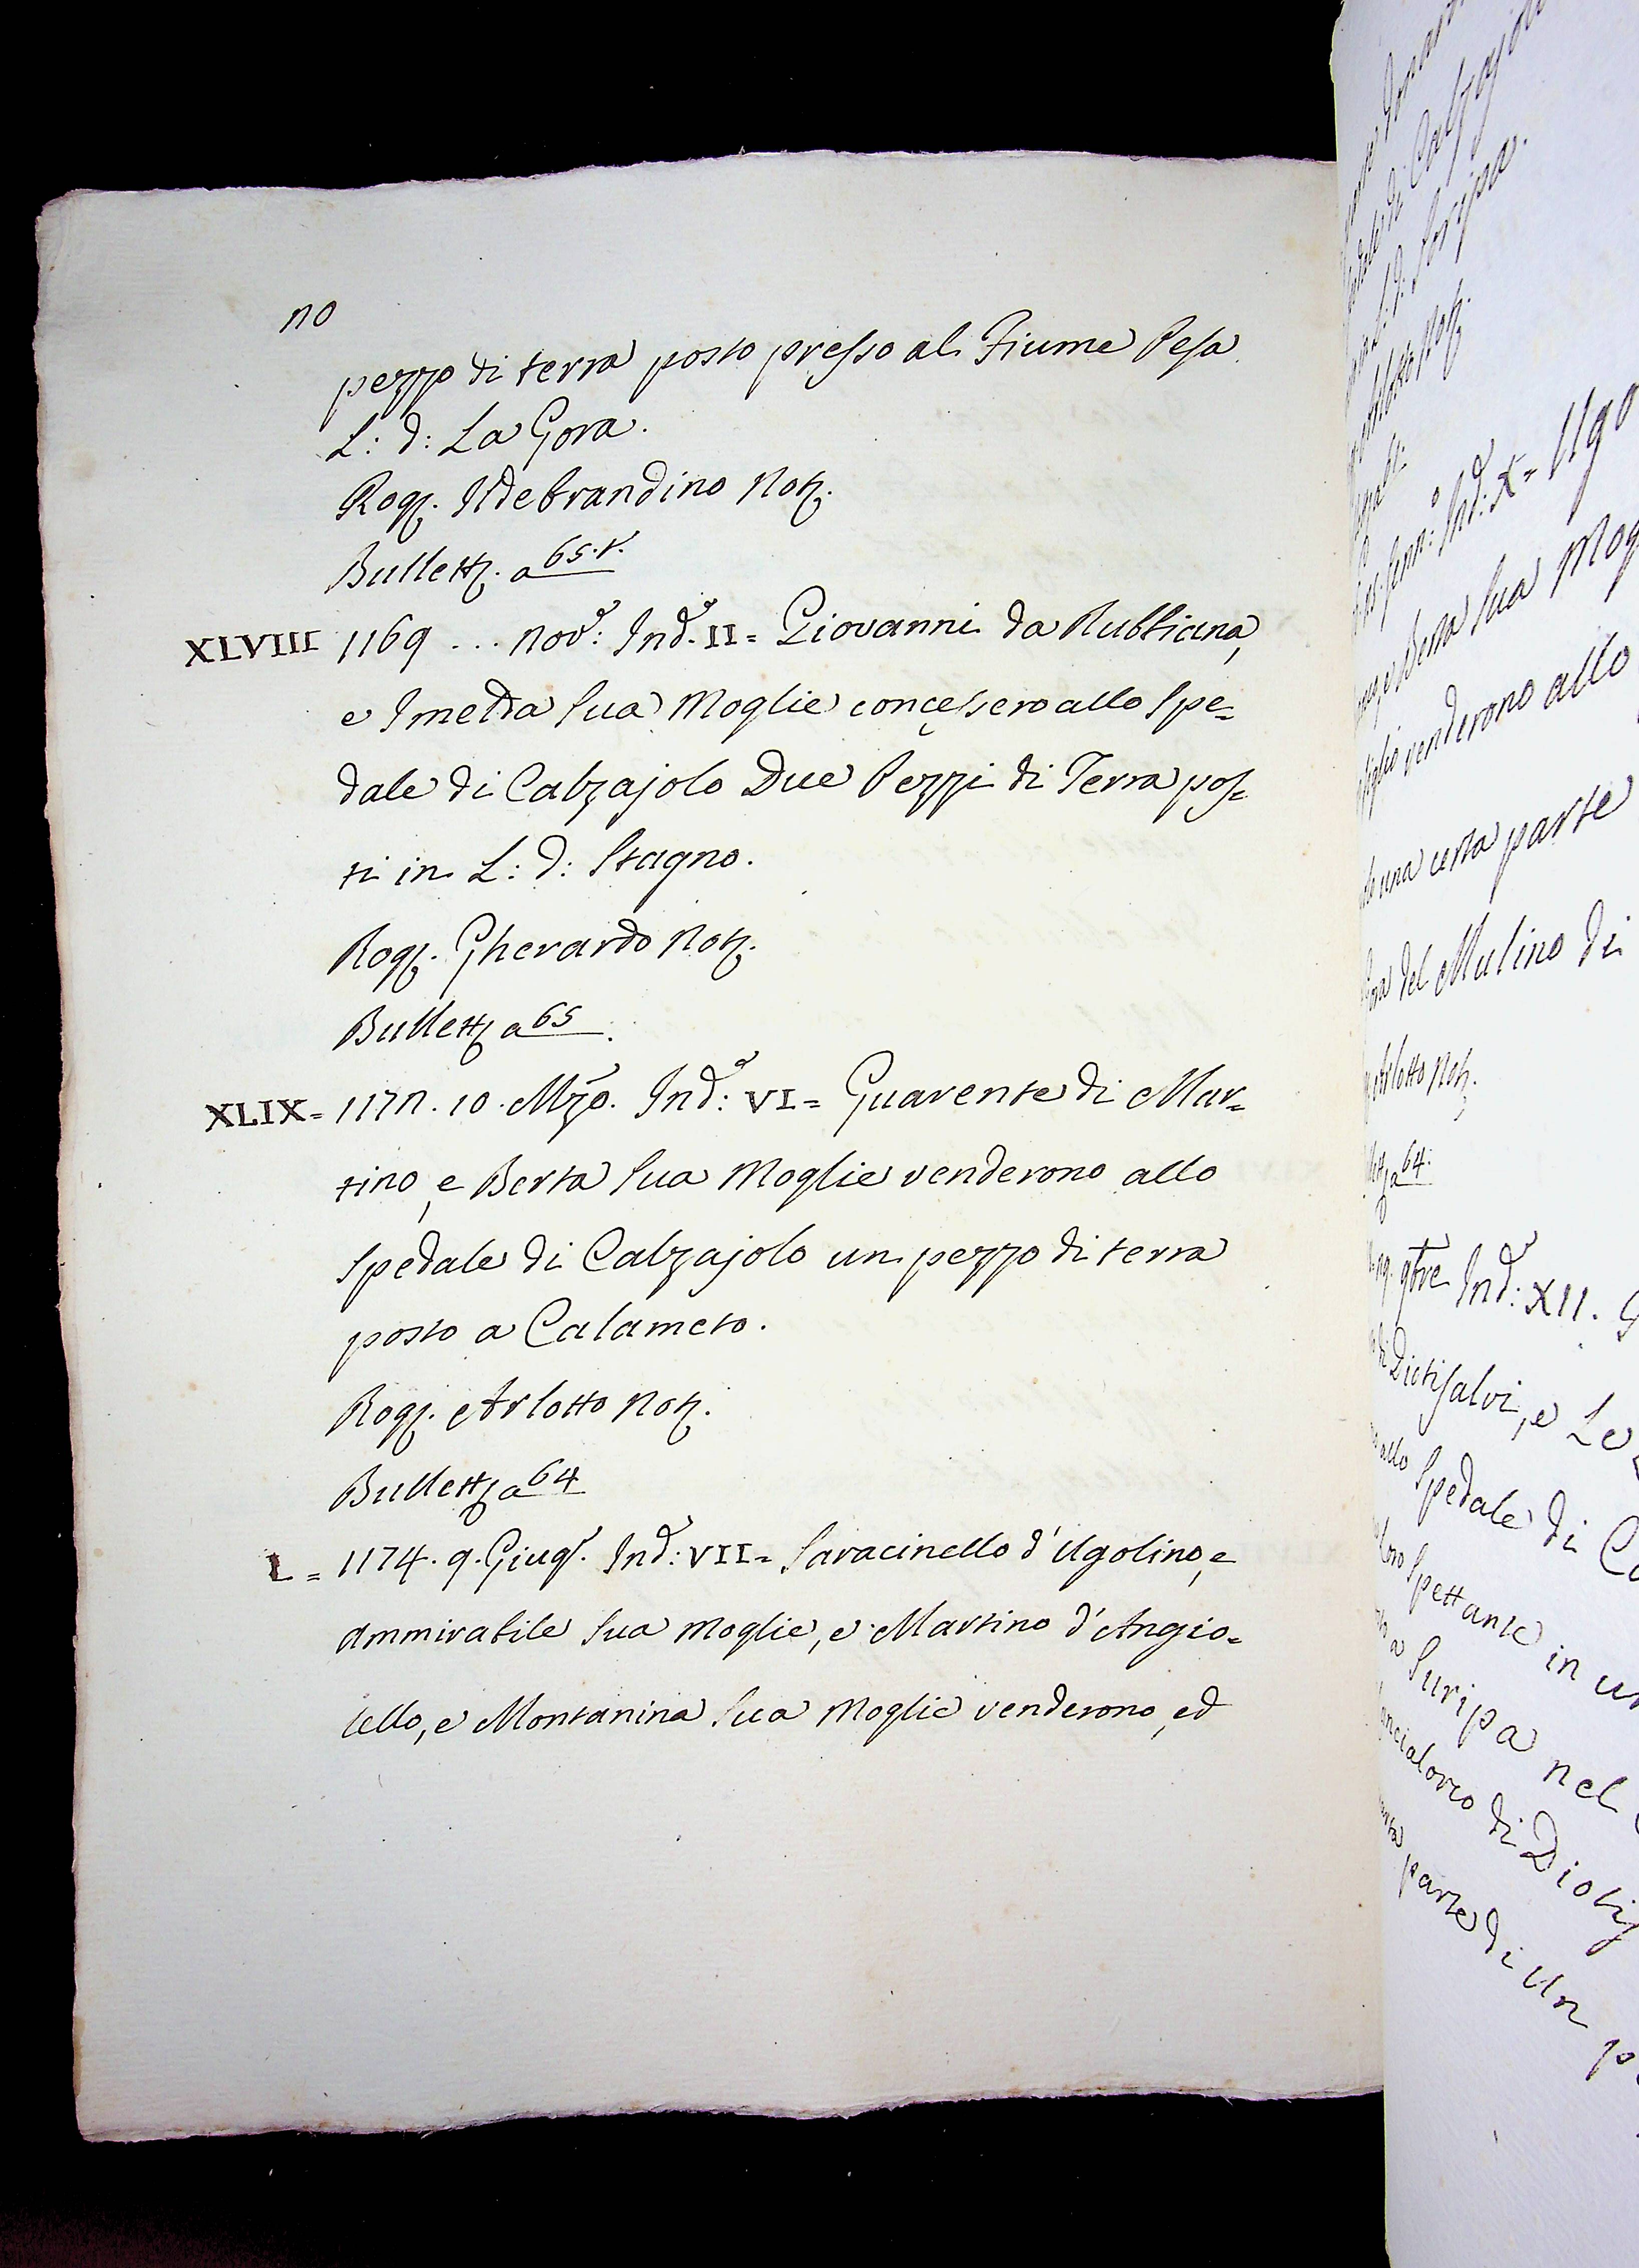 20
pezzo di terra posto presso al Fiume Pesa
L: d: La Gora.
Rogz. Ildebrandino Notz.
Bullettz. a 65.v.
XLVIII 1169 ... Nove: Ind.e II = Giovanni da Rubbiana,
e Imelda Sua Moglie concessero allo Spe=
dale di Calzajolo Due Pezzi di Terra pos=
ti in L: d: Stagno.
Rogz. Gherardo Notz.
Bullettz a 65.
XLIX = 1172. 10. Mzo. Ind.e: VI = Guarente di Mar=
tino, e Berta Sua Moglie venderono allo
Spedale di Calzajolo un pezzo di terra
posto a Calameto.
Rogz. Arlotto Notz.
Bullettz a 64
L = 1174. 9. Giugo. Ind.e: VII = Saracinello d'Ugolino, e
Ammirabile Sua Moglie, e Martino d'Angio=
lello, e Montanina Sua Moglie venderono, ed
di Calzajolo
Notz.
Genn:o Ind.e: X = Ugo
Berta Sua Mog
venderono allo
una certa parte
del Mulino di
Arlotto Notz.
a 64.
29. 9bre Ind.e: XII. G
di Diotisalvi, e Le
allo Spedale di Ca
loro Spettante in un
a Suripa nel
di Diotis
parte di Un p